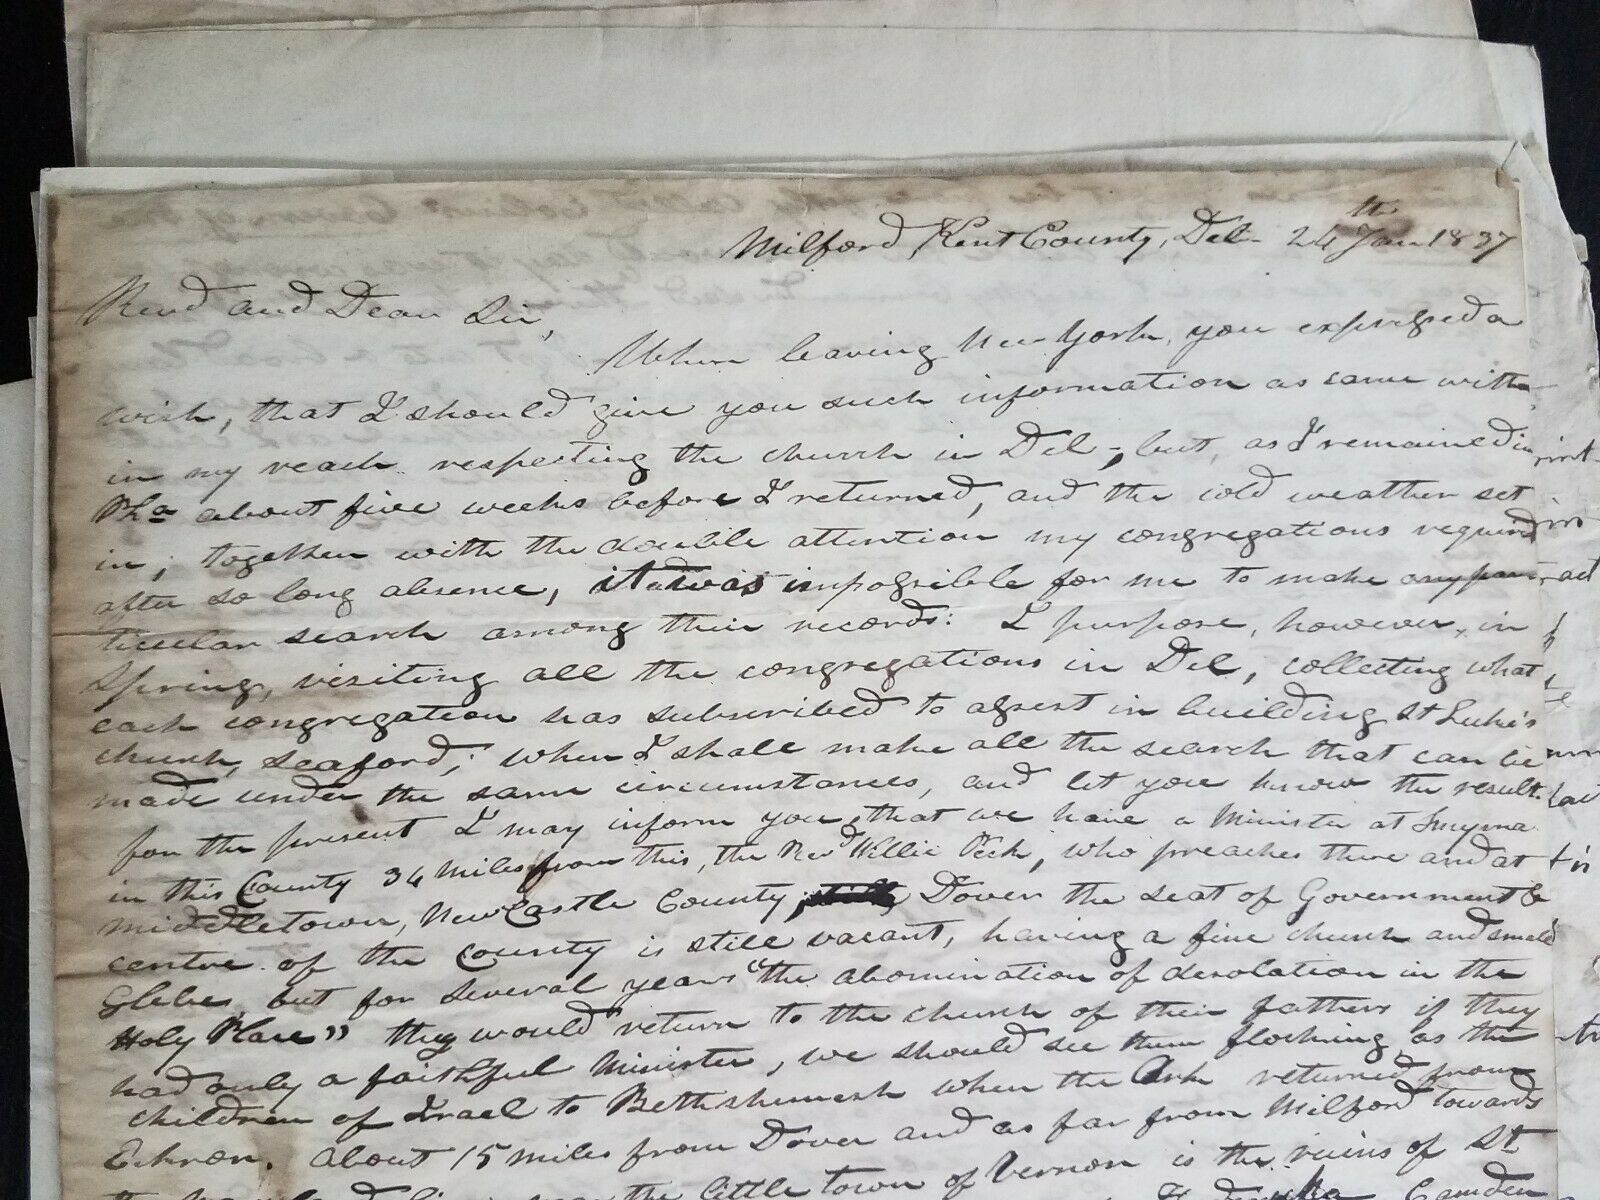 Milford, Kent County, Del. 24th Jan 1837
Revd and Dear Sir,
When leaving New York, you expressed a
wish, that I should give you such information as came with-
in my reach respecting the church in Del-; but, as I remained in
Pha about five weeks before I returned, and the cold weather set
in; together with the double attention my congregations required
after so long absence, it was impossible for me to make any par-
ticular search among their records: I purpose, however, in
Spring, visiting all the congregations in Del, collecting what
each congregation has subscribed to assist in building St Luke's
church, Seaford; when I shall make all the search that can be
made under the same circumstances, and let you know the result.
for the present I may inform you, that we have a Minister at Smyrna
in this County 34 miles from this, the Revd Willie Peck, who preaches there and at
Middletown, New Castle County, Dover the seat of Government &
centre of the county is still vacant, having a fine church and small
Glebe, but for several years "the abomination of desolation in the
Holy Place" they would return to the church of their fathers if they
had only a faithful Minister, we should see them flocking as the
children of Israel to Bethshemesh when the Ark returned from
Eckron. About 15 miles from Dover and as far from Milford towards
the little town of Vernon is the ruins of St
Camden